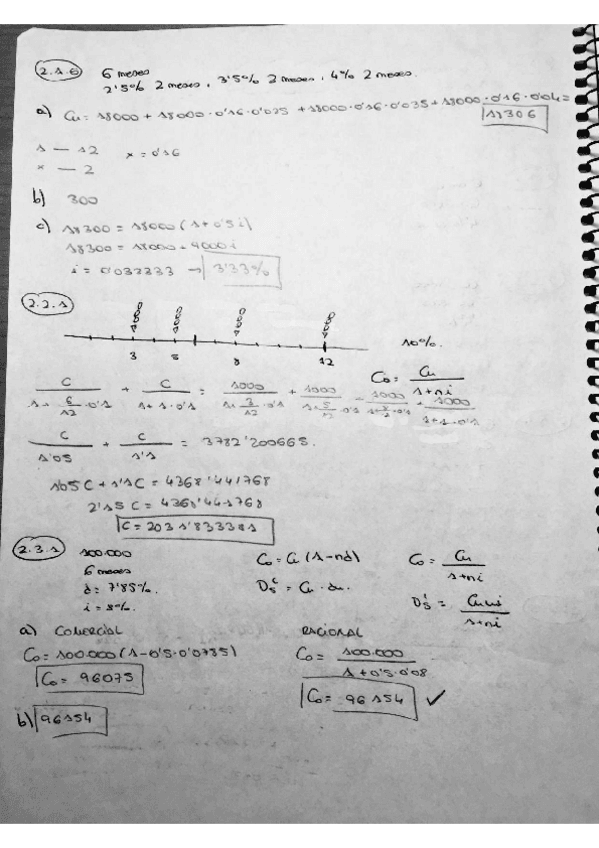 2.1.6 6 meses
2'5% 2 meses, 3'5% 2 meses, 4% 2 meses.
a) Cn = 18000 + 18000 · 0'16 · 0'025 + 18000 · 0'16 · 0'035 + 18000 · 0'16 · 0'04 =
18306
1 — 12 x = 0'16
x — 2
b) 300
c) 18300 = 18000 (1 + 0'5 i)
18300 = 18000 + 9000 i
i = 0'033333 → 3'33%
2.2.1
1000 1000 1000 1000
3 5 8 12 10%.
C0 = Cn / 1+ni
C / 1 + 6/12 · 0'1 + C / 1 + 1 · 0'1 = 1000 / 1 + 3/12 · 0'1 + 1000 / 1 + 5/12 · 0'1 + 1000 / 1 + 8/12 · 0'1 + 1000 / 1 + 1 · 0'1
C / 1'05 + C / 1'1 = 3782'200665.
1'05 C + 1'1 C = 4368'441768
2'15 C = 4368'441768
C = 2031'833381
2.3.1 100.000
6 meses
d = 7'85%.
i = 8%.
C0 = Cn (1 - nd) C0 = Cn / 1+ni
Ds^c = Cn · dn. Ds^r = Cn n i / 1+ni
a) COMERCIAL RACIONAL
C0 = 100.000 (1 - 0'5 · 0'0785) C0 = 100.000 / 1 + 0'5 · 0'08
C0 = 96075 C0 = 96154 ✓
b) 96154